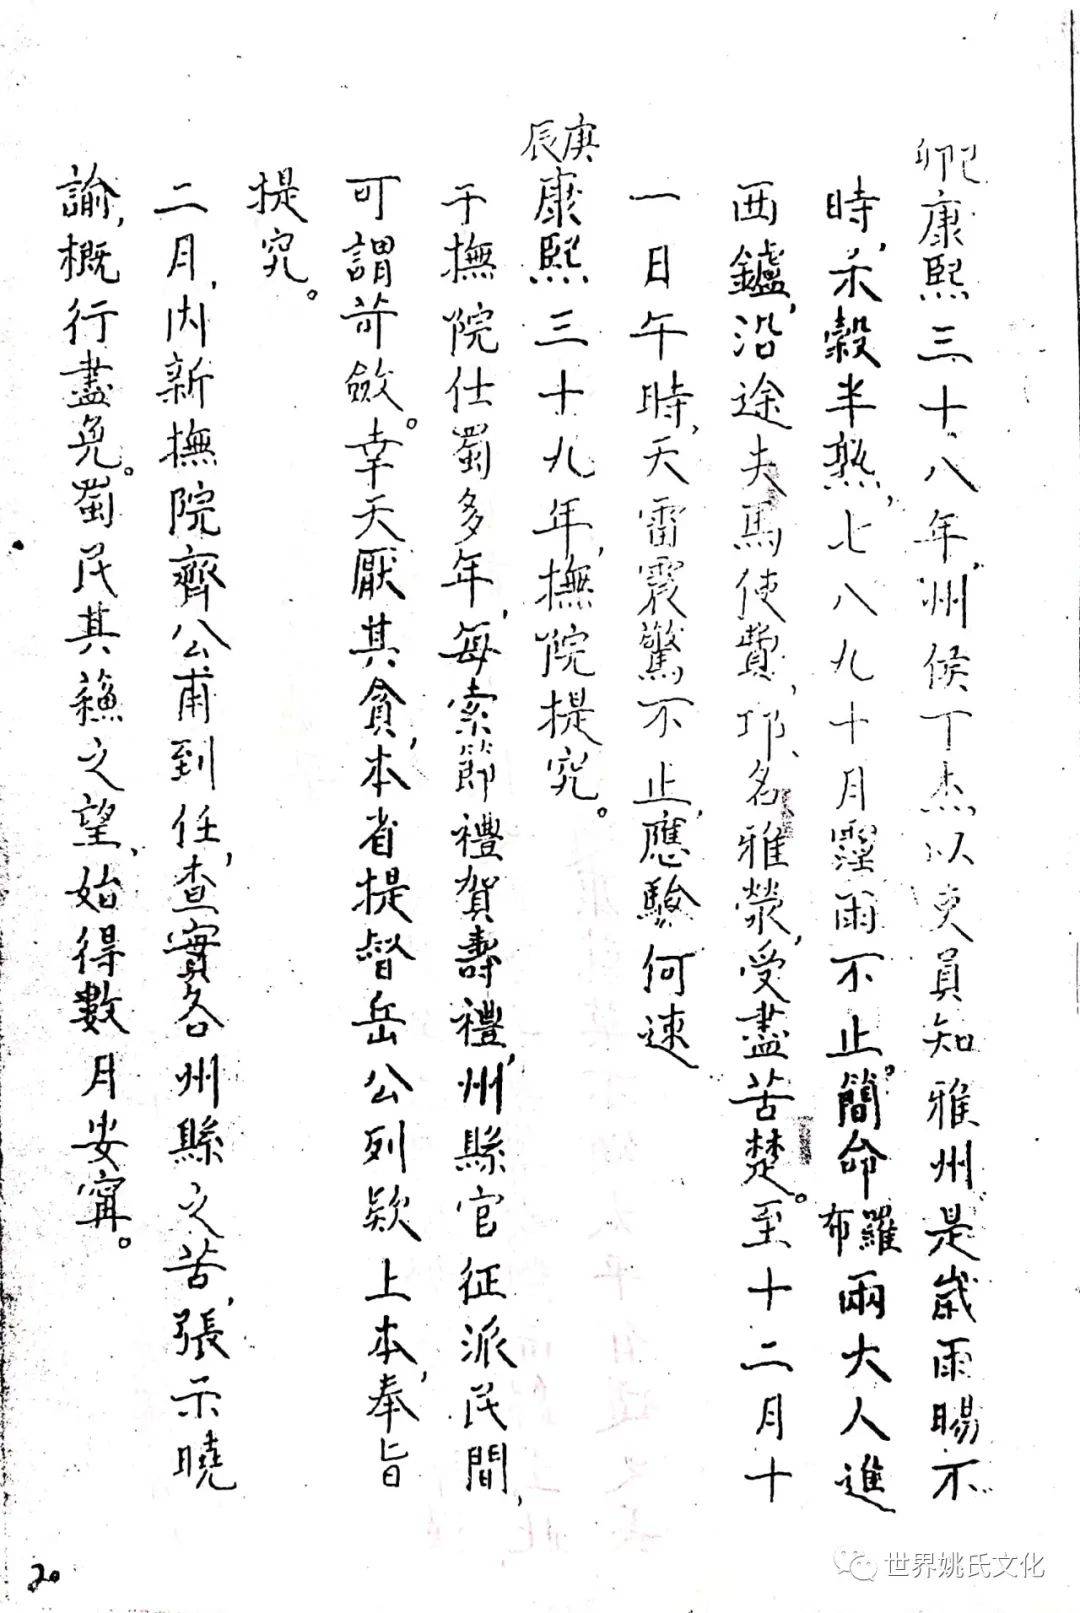 己卯康熙三十八年,州侯丁杰以吏員知雅州是歲雨暘不
時,禾穀半熟,七八九十月霪雨不止。簡命羅布兩大人進
西鑪,沿途夫馬使費,邛、名雅滎,受盡苦楚。至十二月十
一日午時,天雷震驚不止,應驗何速
庚辰康熙三十九年,撫院提究。
于撫院仕蜀多年,每索節禮賀壽禮,州縣官征派民間,
可謂苛斂。幸天厭其貪,本省提督岳公列欵上本,奉旨
提究。
二月,內新撫院齊公甫到任,查實各州縣之苦,張示曉
諭,概行盡免。蜀民其蘓之望,始得數月安寗。
20
世界姚氏文化